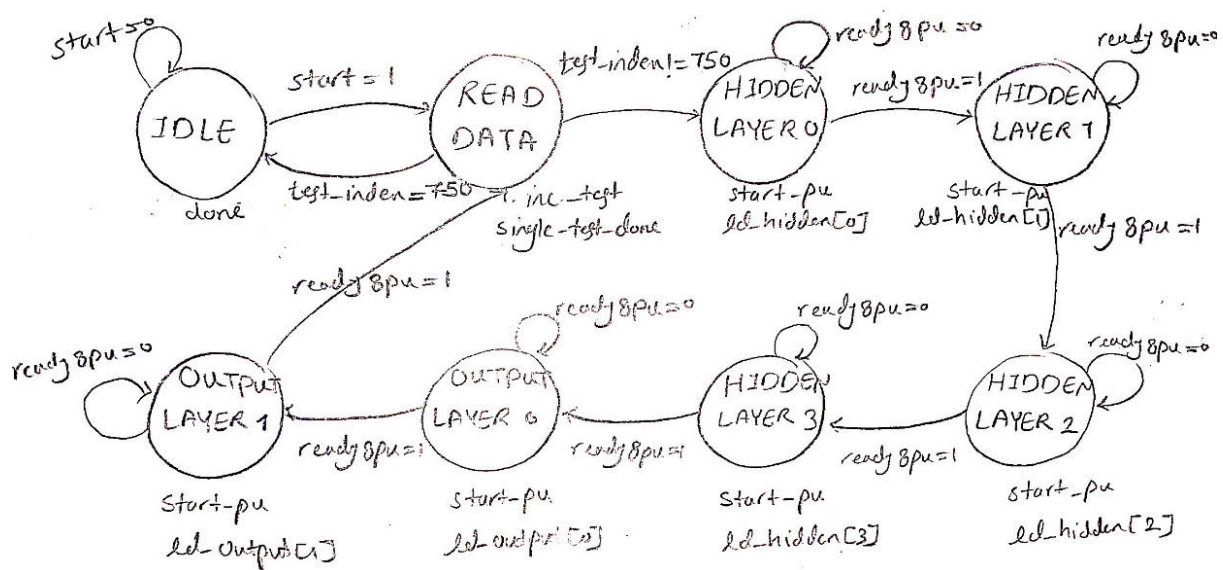 start=0
IDLE
done
start = 1
test_inden=750
READ
DATA
inc_test
single_test_done
test_inden!=750
ready8pu=0
HIDDEN
LAYER 0
start_pu
ld_hidden[0]
ready8pu=1
ready8pu=0
HIDDEN
LAYER 1
start_pu
ld_hidden[1]
ready8pu=1
ready8pu=0
HIDDEN
LAYER 2
start_pu
ld_hidden[2]
ready8pu=1
ready8pu=0
HIDDEN
LAYER 3
start-pu
ld_hidden[3]
ready8pu=1
ready8pu=0
OUTPUT
LAYER 0
start-pu
ld_output[0]
ready8pu=1
ready8pu=0
OUTPUT
LAYER 1
start-pu
ld_output[1]
ready8pu=1